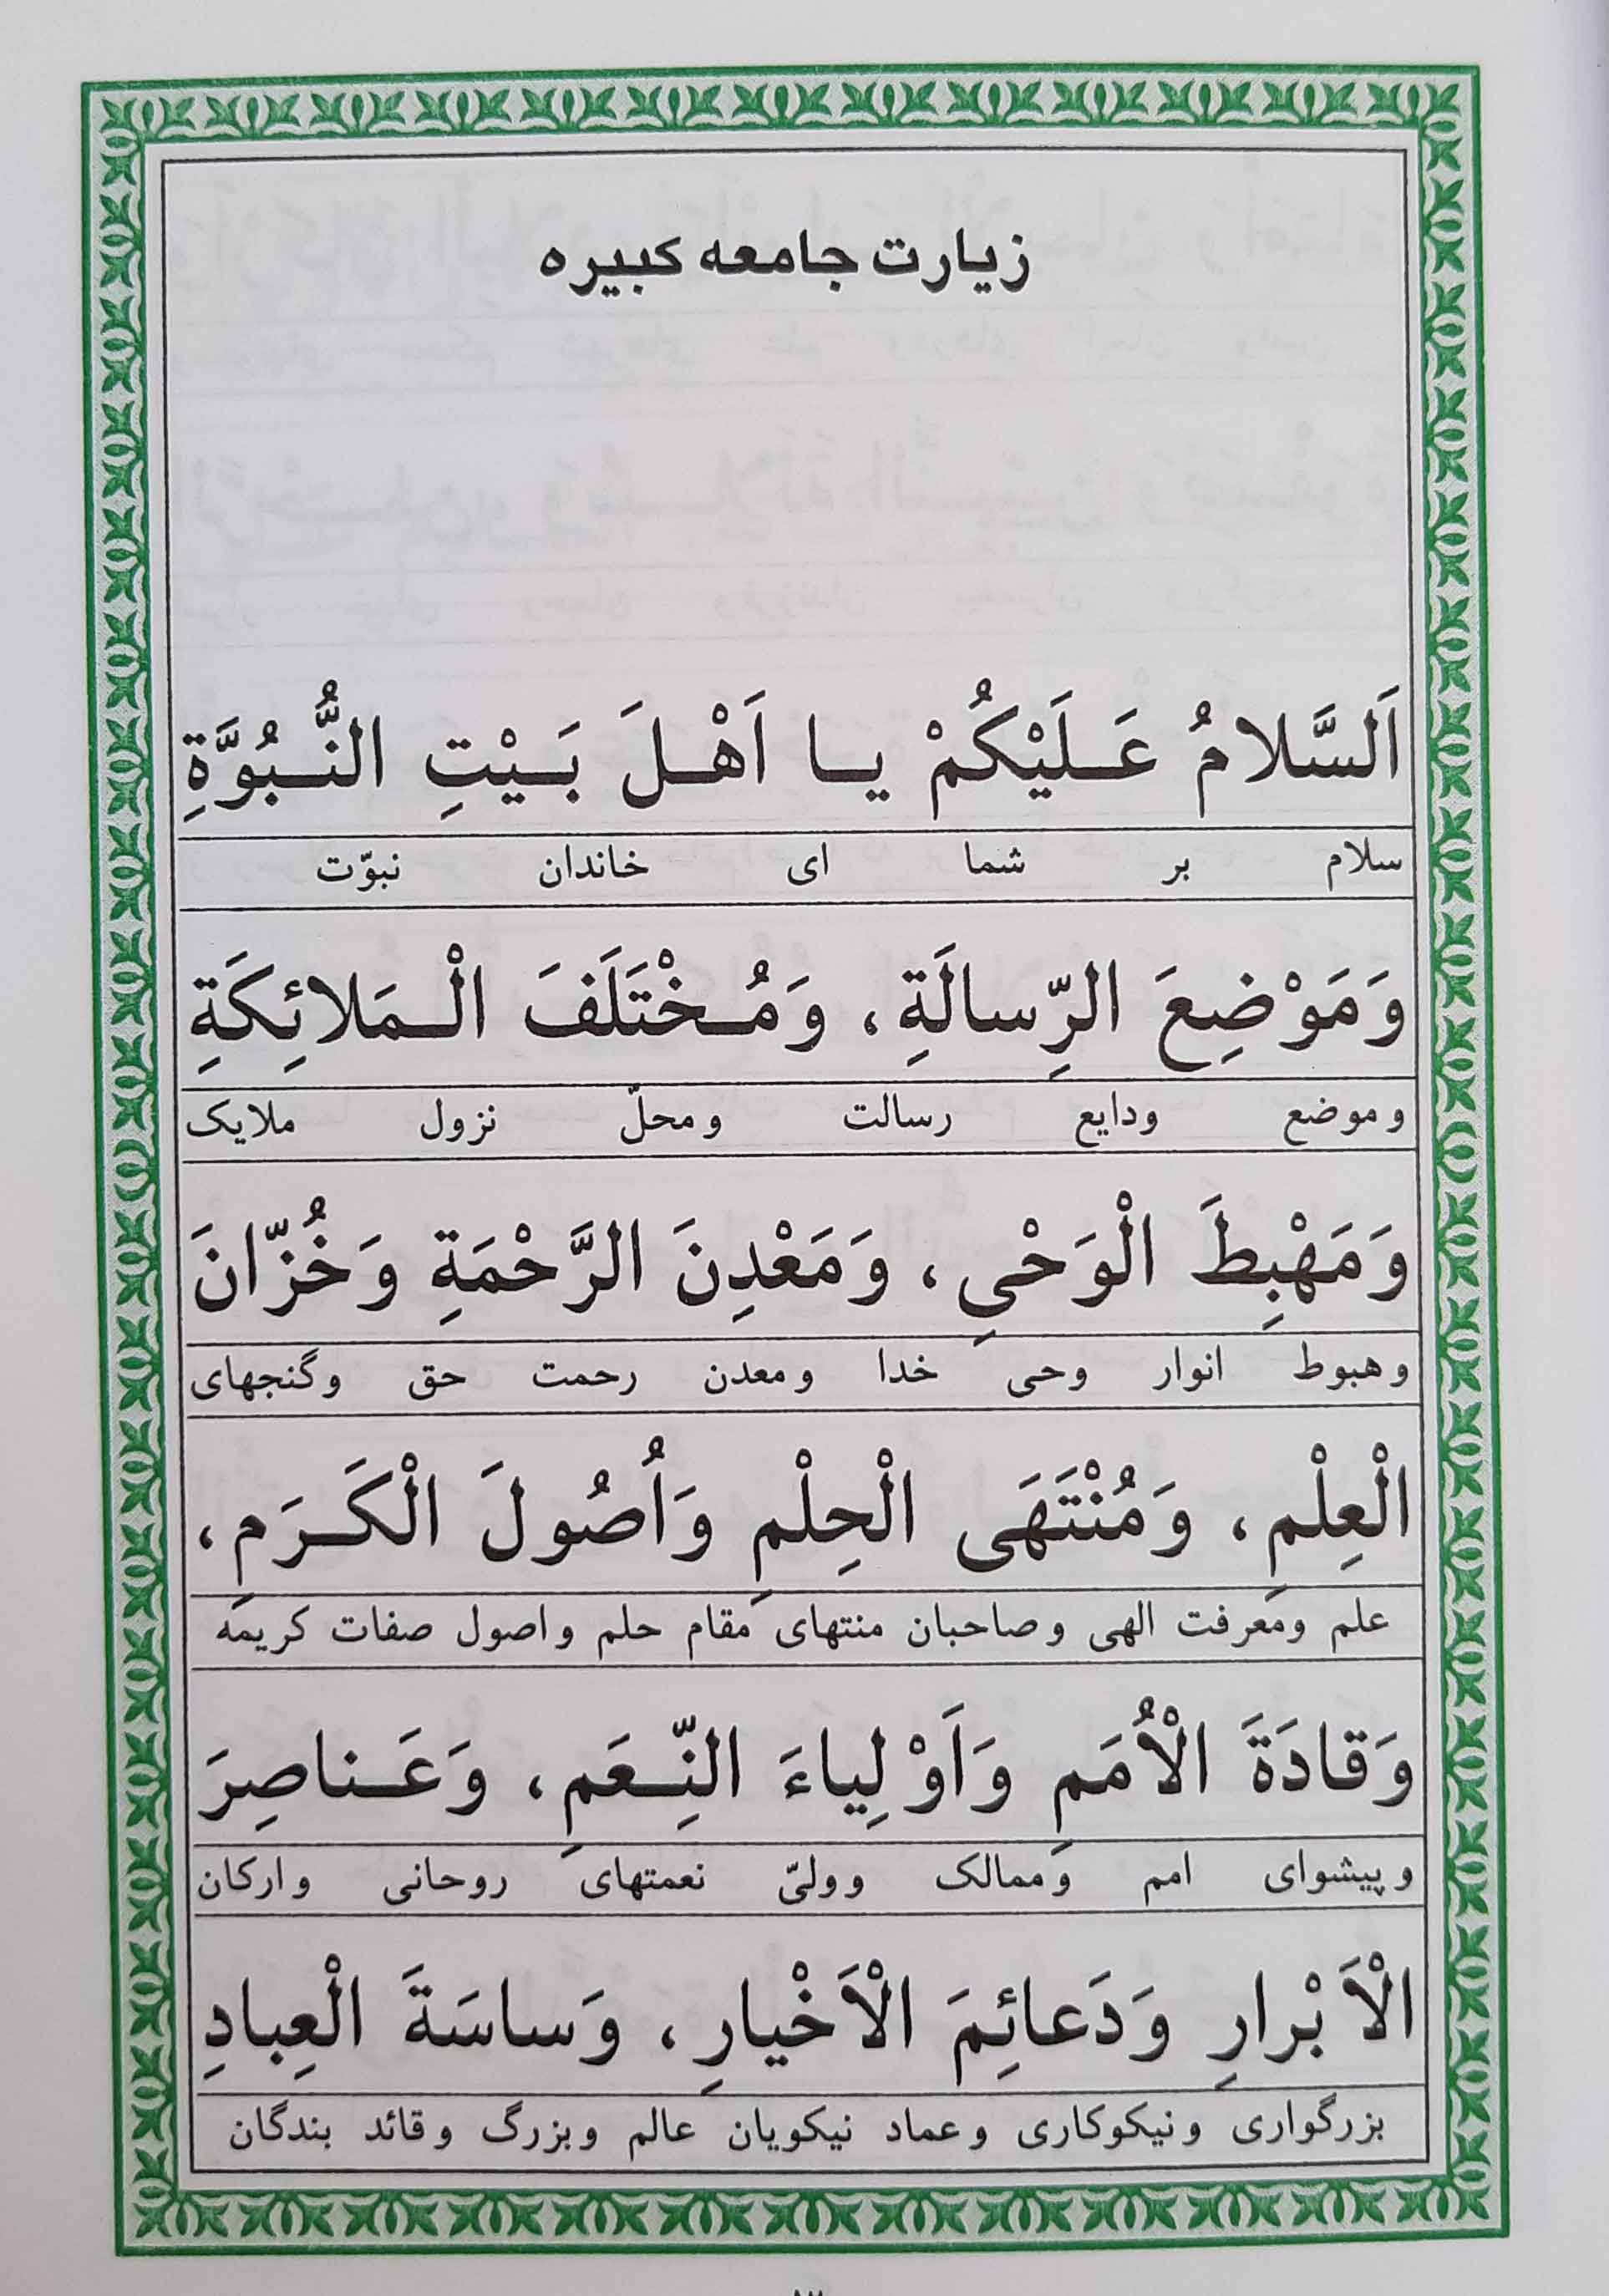 زیارت جامعه کبیره
اَلسَّلامُ عَلَيْكُمْ يا اَهْلَ بَيْتِ النُّبُوَّةِ
سلام بر شما ای خاندان نبوّت
وَمَوْضِعَ الرِّسالَةِ، وَمُخْتَلَفَ الْمَلائِكَةِ
وموضع ودایع رسالت ومحلّ نزول ملایک
وَمَهْبِطَ الْوَحْىِ، وَمَعْدِنَ الرَّحْمَةِ وَخُزّانَ
وهبوط انوار وحی خدا ومعدن رحمت حق وگنجهای
الْعِلْمِ، وَمُنْتَهَى الْحِلْمِ وَاُصُولَ الْكَرَمِ،
علم ومعرفت الهی وصاحبان منتهای مقام حلم واصول صفات کریمه
وَقادَةَ الْاُمَمِ وَاَوْلِياءَ النِّعَمِ، وَعَناصِرَ
وپیشوای امم وممالک وولیّ نعمتهای روحانی وارکان
الْاَبْرارِ وَدَعائِمَ الْاَخْيارِ، وَساسَةَ الْعِبادِ
بزرگواری ونیکوکاری وعماد نیکویان عالم وبزرگ وقائد بندگان